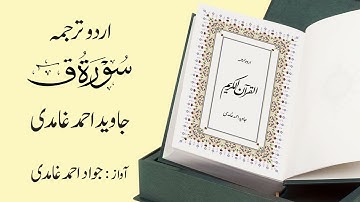 اردو ترجمہ
سورة ق
جاوید احمد غامدی
آواز : جواد احمد غامدی
اردو ترجمہ
القرآن الکریم
جاوید احمد غامدی